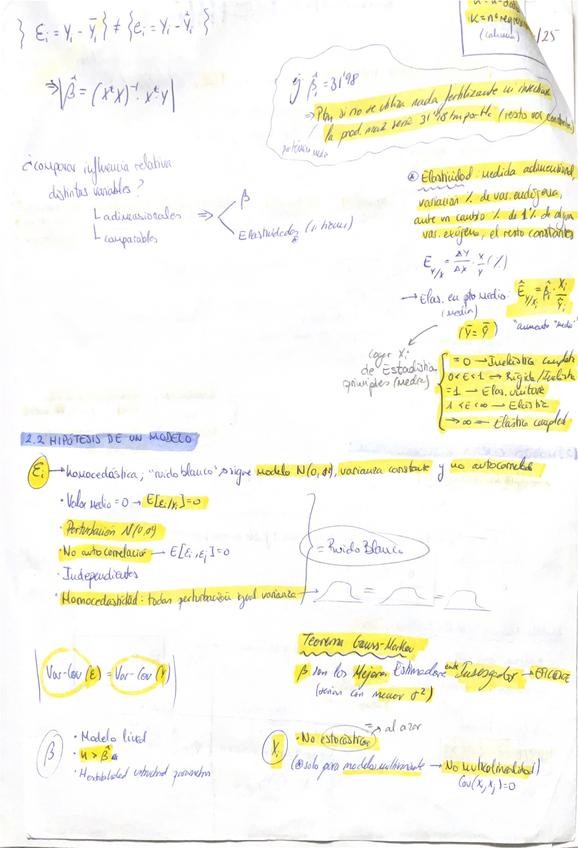 } εi = Yi - Ȳi } ≠ { ei = Yi - Ŷi }
K = nº regre
(columna)
/25
⇒ |β̂ = (XᵗX)⁻¹ · Xᵗ · Y|
ej β̂i = 31'98
⇒ Pbm si no se utiliza nada fertilizante ni
la prod. maíz sería 31'98 (resto var. constante)
¿comparar influencia relativa
distintas variables?
adimensionales
comparables
⇒
β
Elasticidades
Elasticidad: medida adimensional,
variación % de var. endógena,
ante un cambio % de 1% de alguna
var. exógena, el resto constantes
E Y/X = ΔY/ΔX · X/Y (%)
→ Elas. en pto medio: Ê Y/Xi = β̂i · X̄i/Ȳi
(media)
(Ȳ = Ŷ) "aumento "medio"
coger X̄i
de Estadística
principales (media)
= 0 → Inelástica completa
0 < E < 1 → Rígida/Inelást
= 1 → Elas. unitaria
1 < E < ∞ → Elástica
→ ∞ → Elástica complet
2.2 HIPÓTESIS DE UN MODELO
εi → homocedástica; "ruido blanco" sigue modelo N(0, σ²), varianza constante y no autocorrelac
· Valor medio = 0 → E[εi/xi] = 0
· Perturbación N(0, σ²)
· No autocorrelación → E[εi, εj] = 0
= Ruido Blanco
· Independientes
· Homocedasticidad: todas perturbación igual varianza
= =
Teorema Gauss-Markov
|Var-Cov(ε) = Var-Cov(Y)|
β son los Mejores Estimadores Insesgados → EFICIENTE
(serían con menor σ²)
= al azar
β
· Modelo lineal
· n > β̂
Xi
· No estocásticas
(solo para modelos multivariante → No multicolinealidad)
Cov(Xi, Xj) = 0